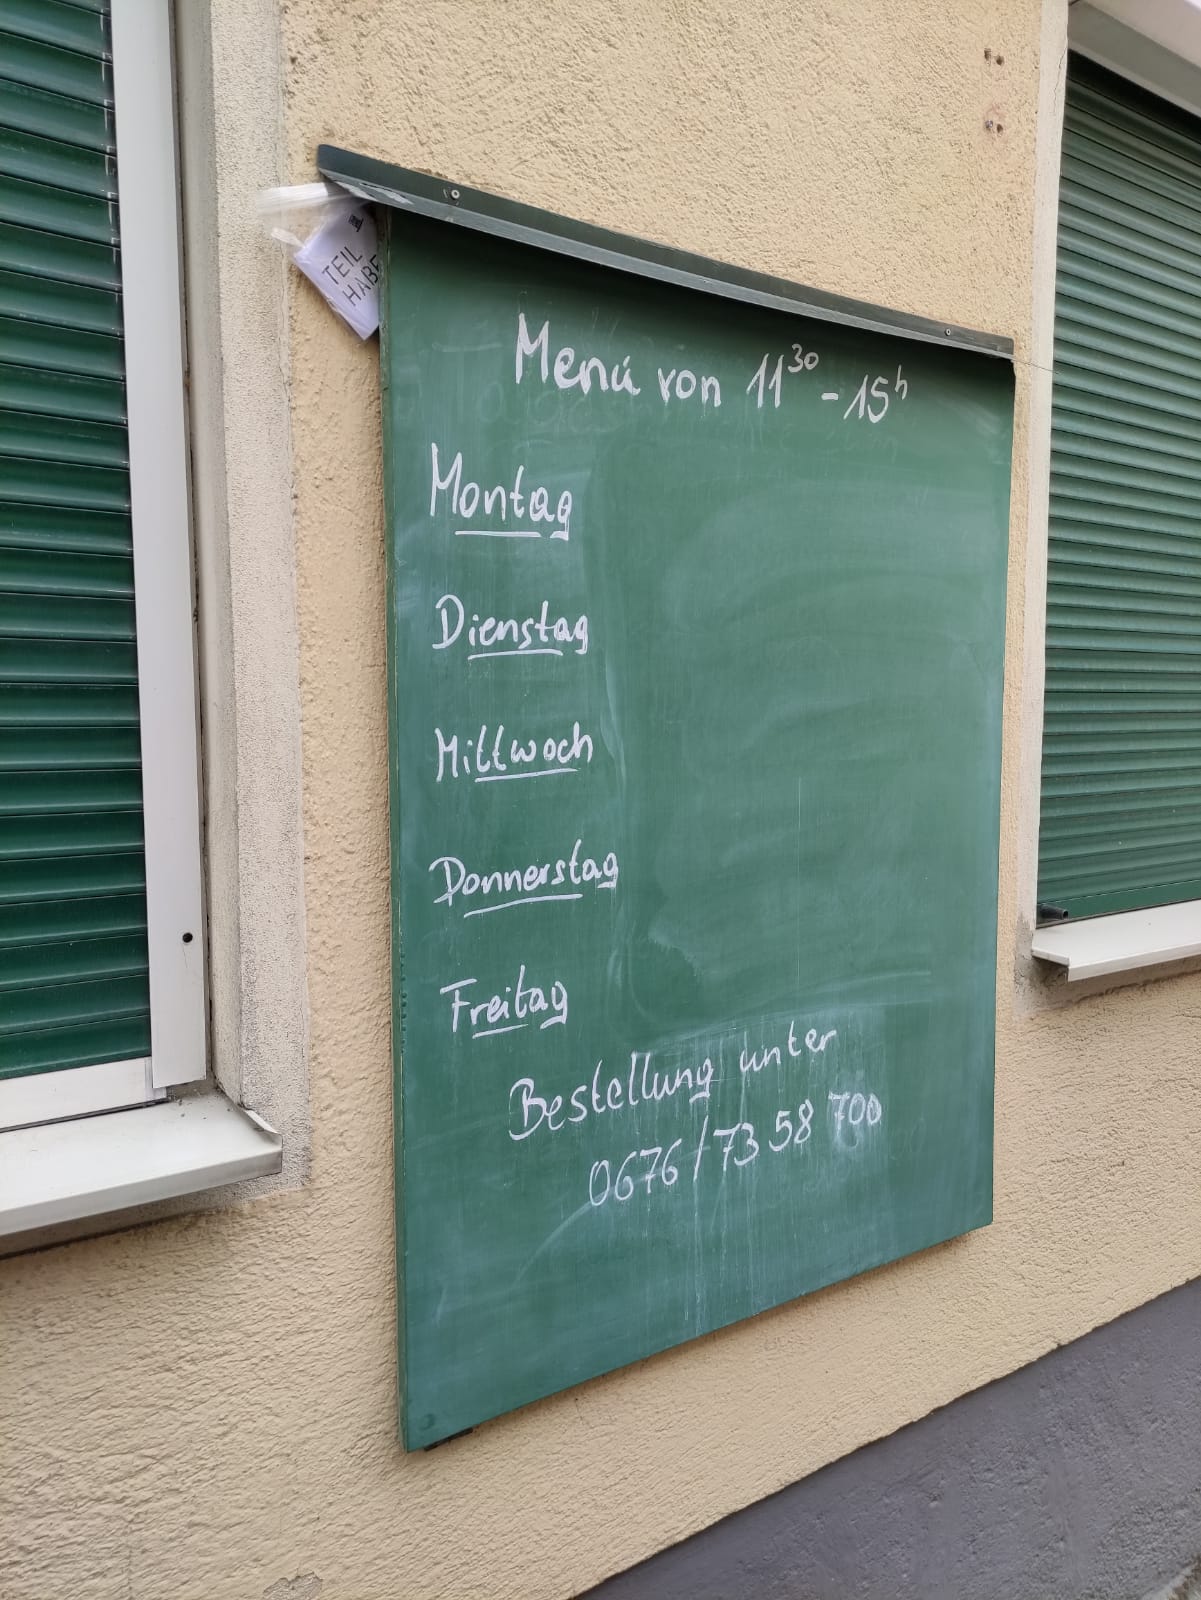 TEIL
HABE
Menü von 11³⁰ - 15ʰ
Montag
Dienstag
Mittwoch
Donnerstag
Freitag
Bestellung unter
0676/73 58 700